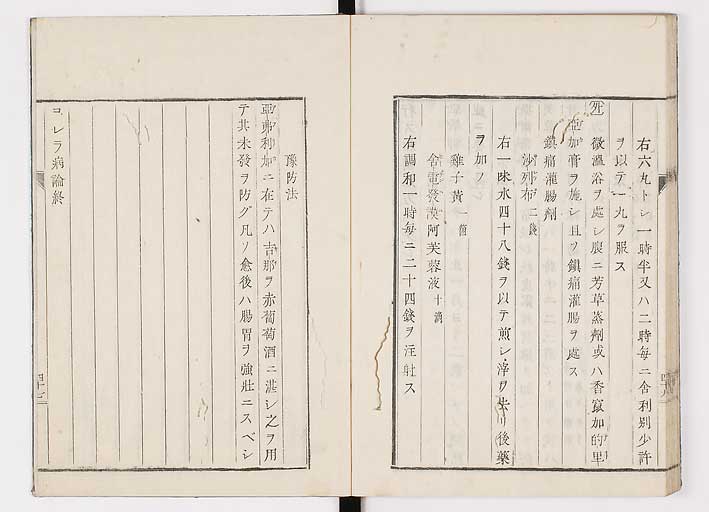 右六丸トシ一時半又ハ二時毎ニ舎利別少許
ヲ以テ一丸ヲ服ス
微温浴ヲ處シ腹ニ芳草蒸劑或ハ香竄加的里
亞加膏ヲ施シ且ツ鎮痛灌腸ヲ處ス
鎮痛灌腸劑
沙列布 二錢
右一味水四十八錢ヲ以テ煎シ滓ヲ去リ後藥
ヲ加フ
雞子黄 一箇
舎電發漠阿芙蓉液 十滴
右調和一時毎ニ二十四錢ヲ注射ス
豫防法
亞弗利加ニ在テハ吉那ヲ赤葡萄酒ニ浸シ之ヲ用
テ其未發ヲ防グ凡ソ愈後ハ腸胃ヲ強壯ニスベシ
コレラ病論終